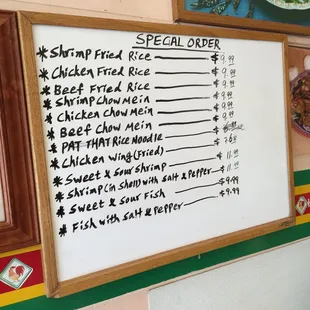 SPECIAL ORDER
* Shrimp Fried Rice $9.99
* Chicken Fried Rice $9.99
* Beef Fried Rice $9.99
* Shrimp Chow Mein 9.99
* Chicken Chow Mein 9.99
* Beef Chow Mein 9.99
* PAT THAI Rice Noodle
* Chicken Wing (Fried)
* Sweet & Sour Shrimp $11.99
* Shrimp (in Shell) with Salt & Pepper $11.99
* Sweet & Sour Fish $9.99
* Fish with Salt & Pepper $9.99